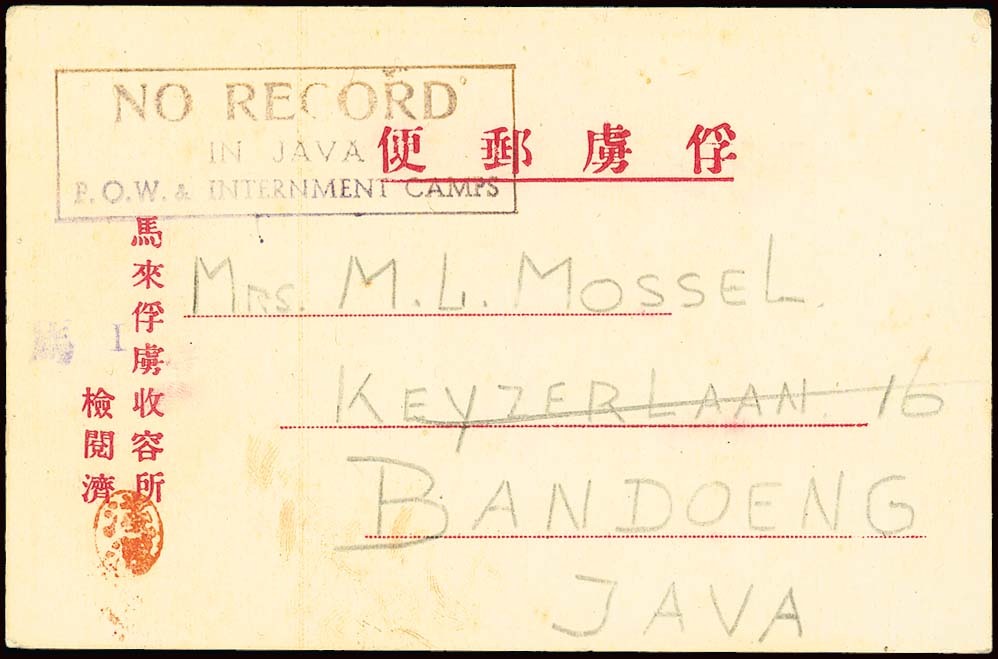 NO RECORD
IN JAVA
P.O.W. & INTERNMENT CAMPS
俘虜郵便
馬來俘虜收容所
檢閱濟
I
Mrs. M. L. MOSSEL.
KEYZERLAAN. 16
BANDOENG
JAVA